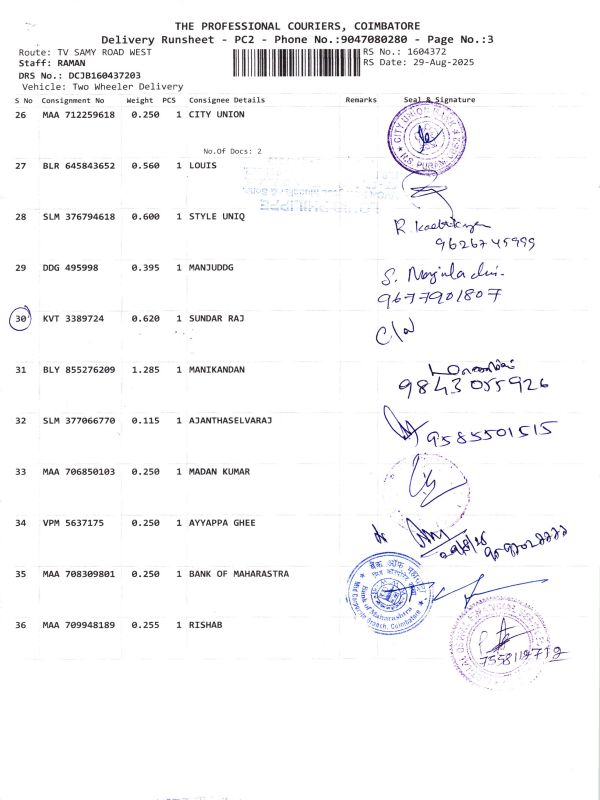 THE PROFESSIONAL COURIERS, COIMBATORE
Delivery Runsheet - PC2 - Phone No.:9047080280 - Page No.:3
Route: TV SAMY ROAD WEST
RS No.: 1604372
Staff: RAMAN
RS Date: 29-Aug-2025
DRS No.: DCJB160437203
Vehicle: Two Wheeler Delivery
S No Consignment No Weight PCS Consignee Details Remarks Seal & Signature
26 MAA 712259618 0.250 1 CITY UNION
No.Of Docs: 2
CITY UNION BANK
R.S. PURAM
27 BLR 645843652 0.560 1 LOUIS
28 SLM 376794618 0.600 1 STYLE UNIQ
9626745999
29 DDG 495998 0.395 1 MANJUDDG
9677901807
30 KVT 3389724 0.620 1 SUNDAR RAJ
31 BLY 855276209 1.285 1 MANIKANDAN
9843055926
32 SLM 377066770 0.115 1 AJANTHASELVARAJ
9585501515
33 MAA 706850103 0.250 1 MADAN KUMAR
34 VPM 5637175 0.250 1 AYYAPPA GHEE
35 MAA 708309801 0.250 1 BANK OF MAHARASTRA
बैंक ऑफ महाराष्ट्र
Bank of Maharashtra
Mid Corporate Branch, Coimbatore
36 MAA 709948189 0.255 1 RISHAB